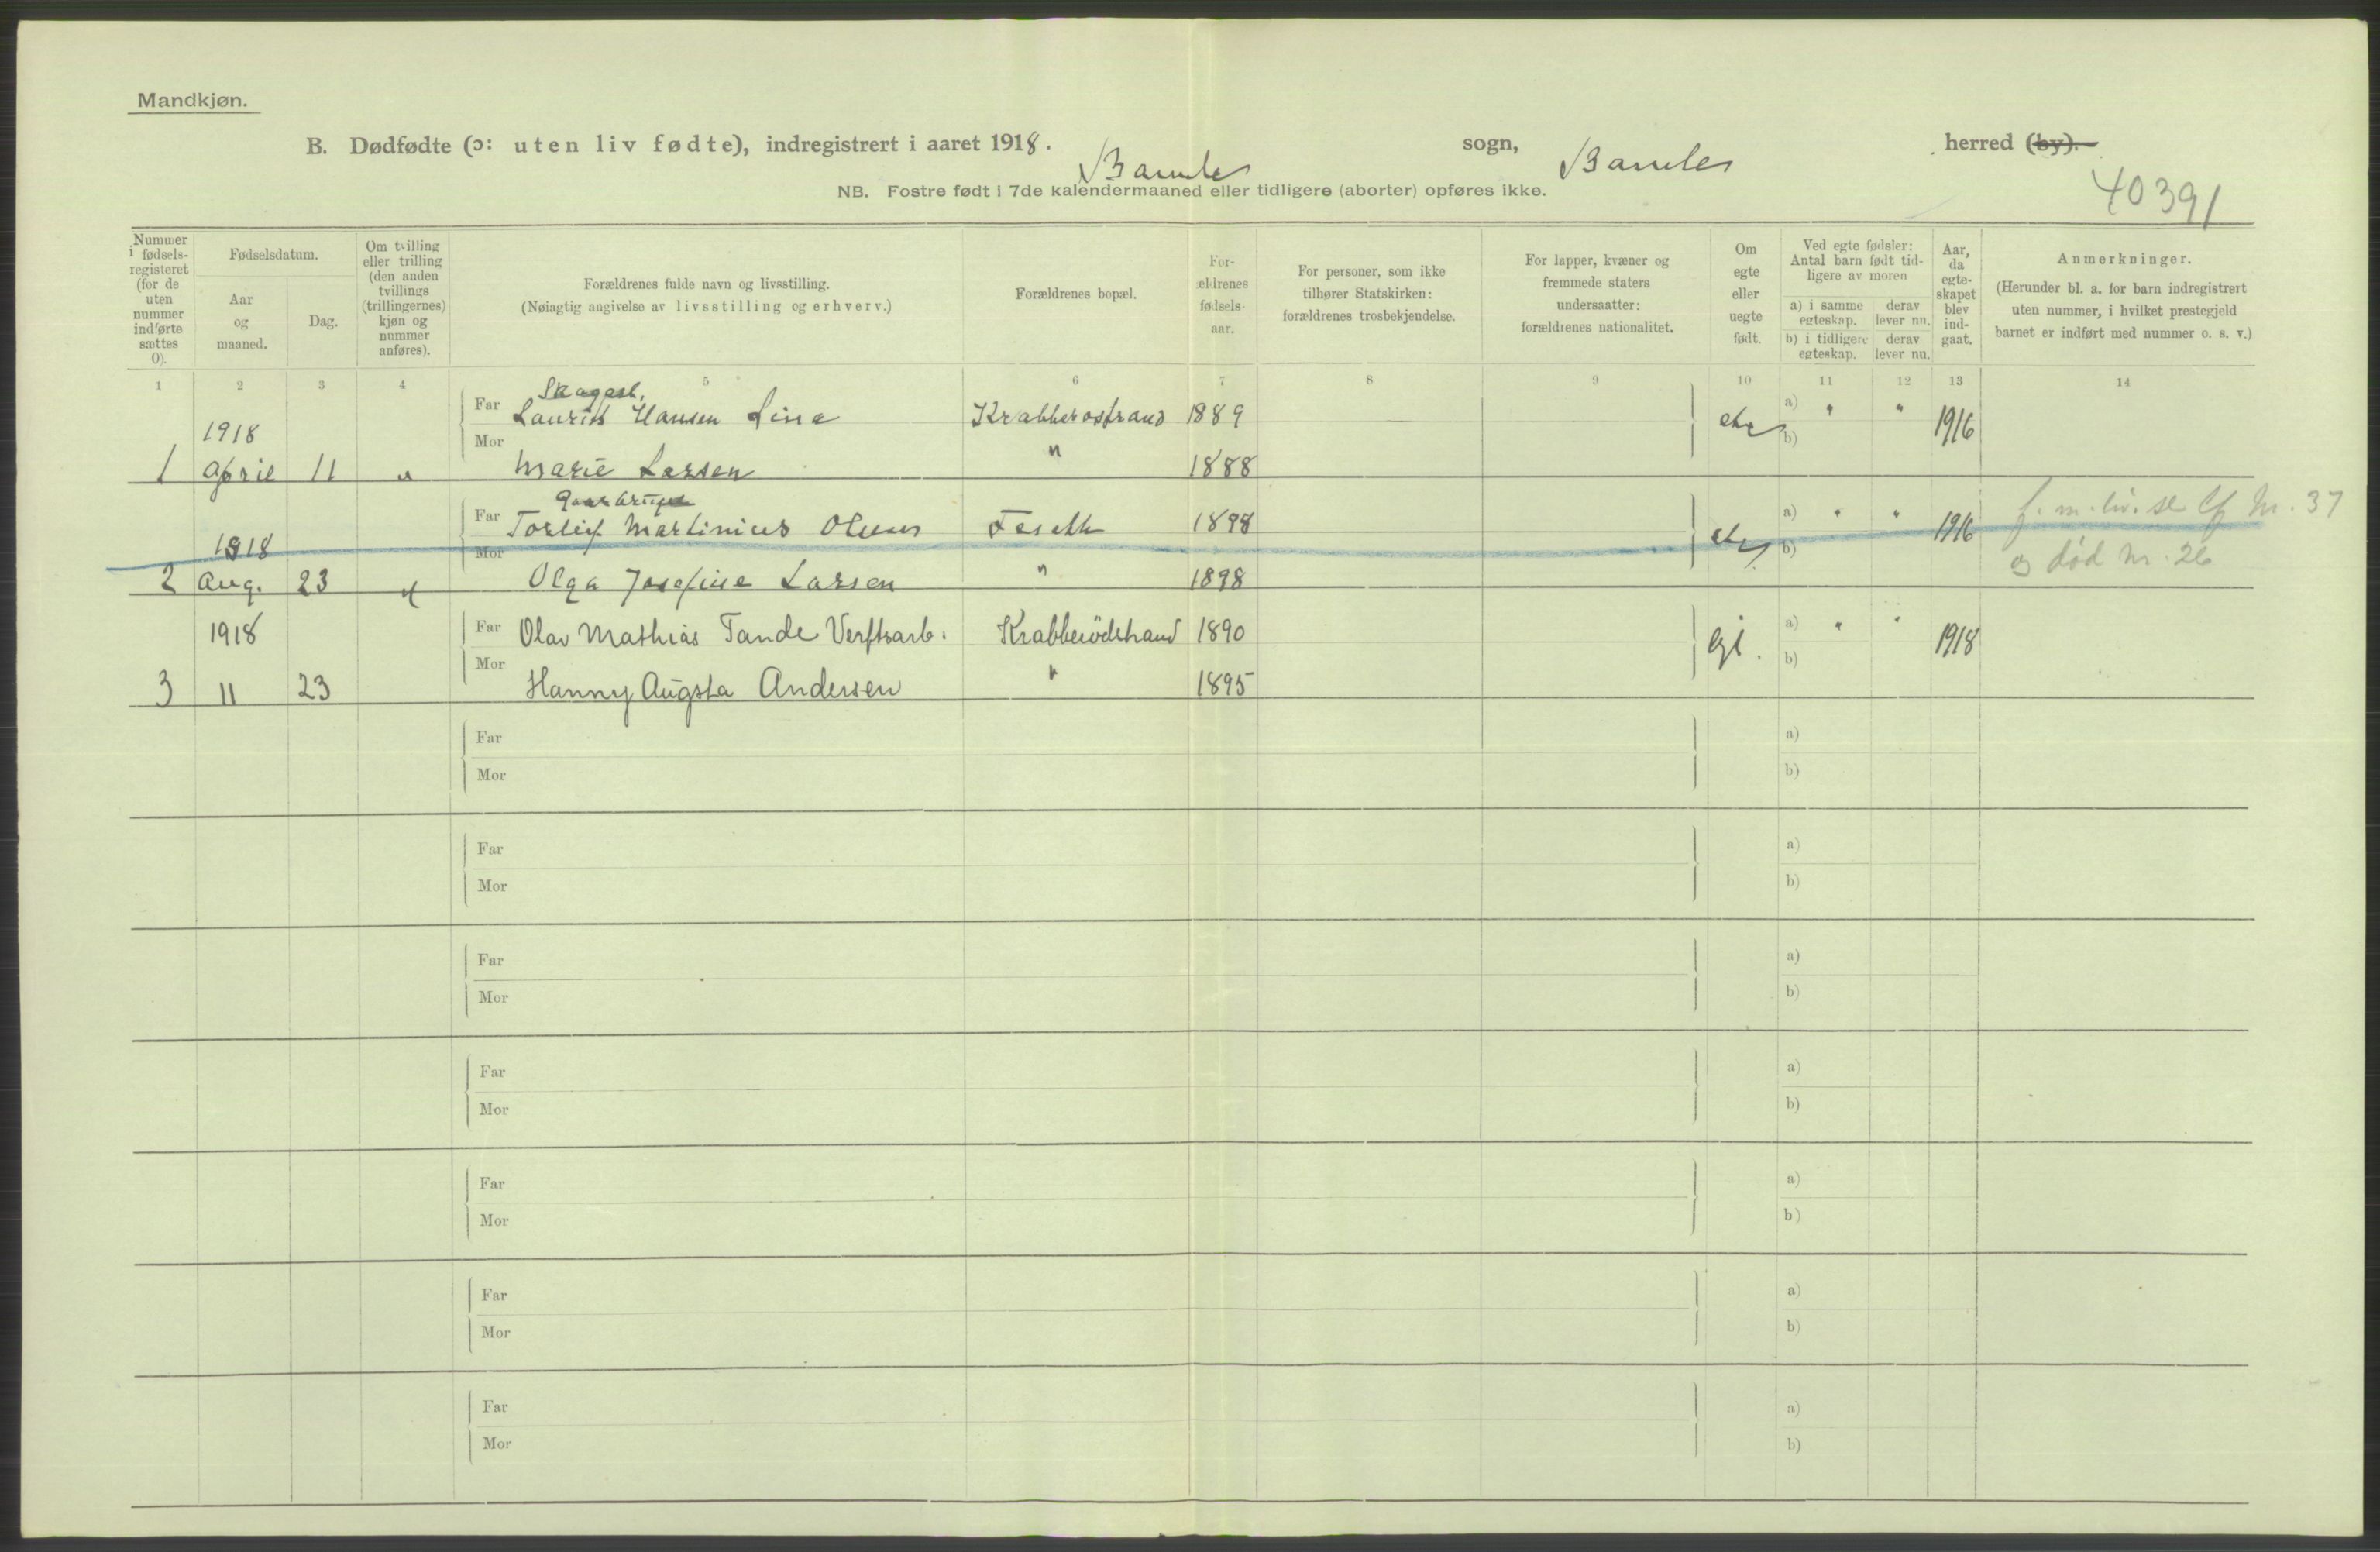 Mandkjøn.
B. Dødfødte (ɔ: uten liv fødte), indregistrert i aaret 1918. Bamle sogn, Bamle herred (by).
NB. Fostre født i 7de kalendermaaned eller tidligere (aborter) opføres ikke.
40391
Nummer i fødsels-registeret (for de uten nummer indførte sættes 0).
Fødselsdatum.
Aar og maaned.
Dag.
Om tvilling eller trilling (den anden tvillings (trillingernes) kjøn og nummer anføres).
Forældrenes fulde navn og livsstilling.
(Nøiagtig angivelse av livsstilling og erhverv.)
Forældrenes bopæl.
For-ældrenes fødsels-aar.
For personer, som ikke tilhører Statskirken: forældrenes trosbekjendelse.
For lapper, kvæner og fremmede staters undersaatter: forældrenes nationalitet.
Om egte eller uegte født.
Ved egte fødsler: Antal barn født tid-ligere av moren
a) i samme egteskap.
derav lever nu.
b) i tidligere egteskap.
derav lever nu.
Aar, da egte-skapet blev ind-gaat.
Anmerkninger.
(Herunder bl. a. for barn indregistrert uten nummer, i hvilket prestegjeld barnet er indført med nummer o. s. v.)
1 2 3 4 5 6 7 8 9 10 11 12 13 14
1918
Far Laurits Hansen 1889 a) " " 1916
Mor b)
1 April 11 " Marie Larsen " 1888
1918
Far Torleif Martinius Olsen 1898 a) " " 1916 Nr. 37
Mor b) og død nr. 26
2 Aug. 23 Olga Josefine Larsen " 1898
1918 Far Olav Mathias Tande Verftsarb. Krabberödstrand 1890 a) " " 1918
Mor b)
3 11 23 Hanny Augsta Andersen " 1895
Far a)
Mor b)
Far a)
Mor b)
Far a)
Mor b)
Far a)
Mor b)
Far a)
Mor b)
Far a)
Mor b)
Far a)
Mor b)